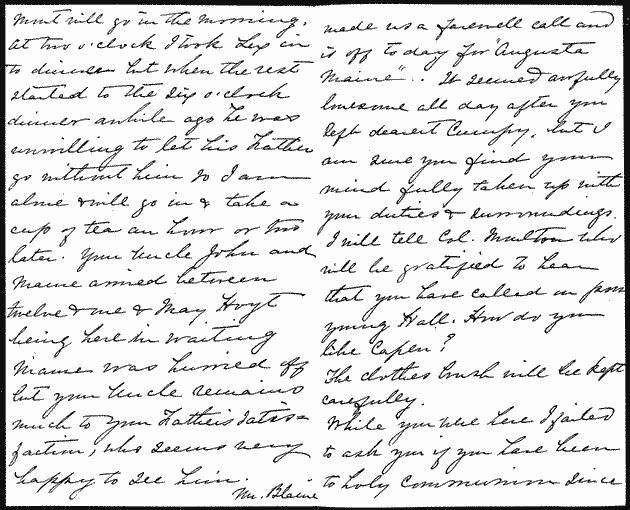 must will go in the morning.
At two o'clock I took Lex in
to dinner but when the rest
started to the six o'clock
dinner awhile ago he was
unwilling to let his Father
go without him so I am
alone & will go in & take a
cup of tea an hour or two
later. Your Uncle John and
Mamie arrived between
twelve & one & May Hoyt
being here in waiting
Mamie was hurried off
but your Uncle remains
much to your Father's satis=
faction, who seems very
happy to see him.
Mr. Blaine
made us a farewell call and
is off to day for "Augusta
Maine".. It seemed awfully
lonesome all day after you
left dearest Cumpy, but I
am sure you find your
mind fully taken up with
your duties & surroundings.
I will tell Col. Moulton who
will be gratified to hear
that you have called on
young Hall. How do you
like Capen?
The clothes brush will be kept
carefully.
While you were here I failed
to ask you if you have been
to holy Communion since